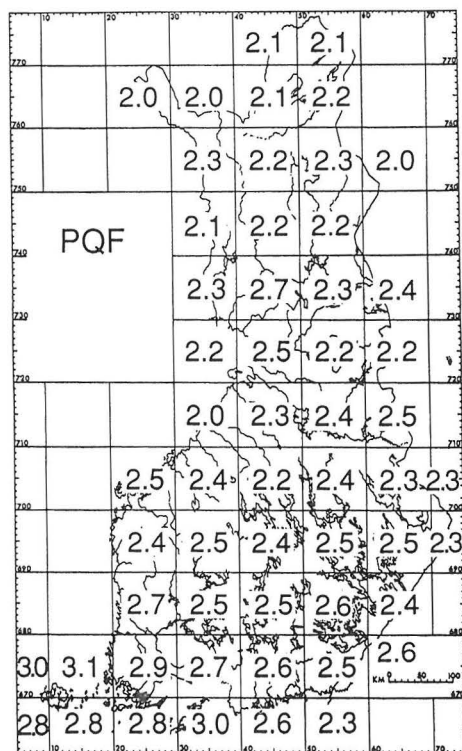 10 20 30 40 50 60 70
2.1 2.1
770 770
2.0 2.0 2.1 2.2
760 760
2.3 2.2 2.3 2.0
750 750
PQF 2.1 2.2 2.2
740 740
2.3 2.7 2.3 2.4
730 730
2.2 2.5 2.2 2.2
720 720
2.0 2.3 2.4 2.5
710 710
2.5 2.4 2.2 2.4 2.3 2.3
700 700
2.4 2.5 2.4 2.5 2.5 2.3
690 690
2.7 2.5 2.5 2.6 2.4
680 680
3.0 3.1 2.9 2.7 2.6 2.5 2.6
KM 0 50 100
670 670
2.8 2.8 2.8 3.0 2.6 2.3
10 20 30 40 50 60 70